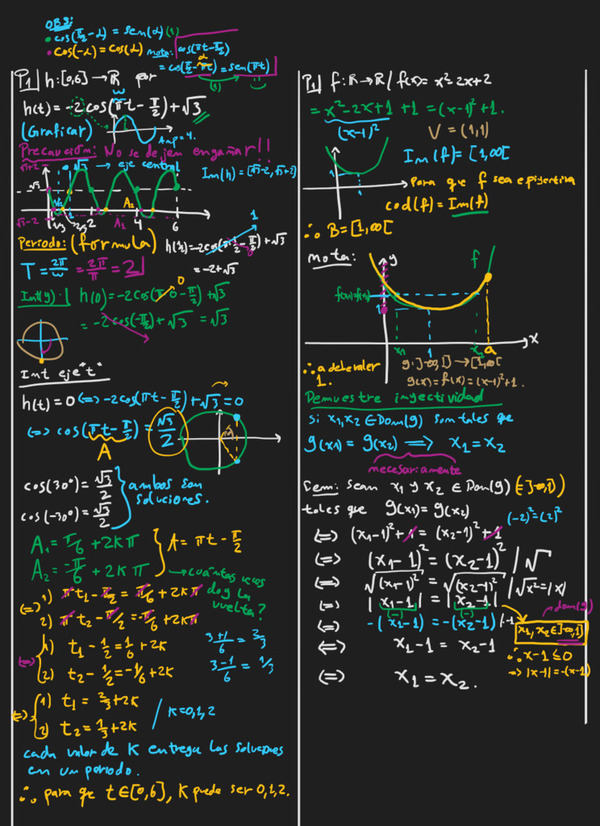 OBS:
• cos(π/2 - α) = sen(α) (1)
• cos(-α) = cos(α) nota: cos(πt - π/2)
= cos(π/2 - πt) = sen(πt)
P1 h: [0,6] → ℝ por
h(t) = -2 cos(πt - π/2) + √3
(Graficar)
Amp=4.
Precaución: No se dejen engañar!!
√3+2
√3 → eje central
Im(h) = [√3-2, √3+2]
√3
√3-2
1/3 2/3 2 4 6
Periodo: (formula)
T = 2π/w = 2π/π = 2
= -2+√3
Int(y): h(0) = -2cos(π·0 - π/2) + √3
0
= -2cos(-π/2) + √3 = √3
Int eje "t"
h(t) = 0 ⟺ -2cos(πt - π/2) + √3 = 0
⟺ cos(πt - π/2) = √3/2
A
cos(30°) = √3/2
cos(-30°) = √3/2
ambos son soluciones.
A₁ = π/6 + 2kπ
A₂ = -π/6 + 2kπ
A = πt - π/2
→ cuántas veces doy la vuelta?
⟺ 1) πt₁ - π/2 = π/6 + 2kπ
2) πt₂ - π/2 = -π/6 + 2kπ
⟺ 1) t₁ - 1/2 = 1/6 + 2k
2) t₂ - 1/2 = -1/6 + 2k
3+1/6 = 2/3
3-1/6 = 1/3
⟺ 1) t₁ = 2/3 + 2k
2) t₂ = 1/3 + 2k
/ k=0,1,2
cada valor de k entrega las soluciones
en un periodo.
∴ para que t∈[0,6], k puede ser 0,1,2.
P1 f: ℝ → ℝ / f(x) = x² - 2x + 2
= x² - 2x + 1 + 1 = (x-1)² + 1.
(x-1)²
V = (1,1)
Im(f) = [1,∞[
1
→ Para que f sea epiyectiva
cod(f) = Im(f)
∴ B = [1,∞[
nota:
y
f
x
1
a
∴ a debe valer
1.
g: ]-∞,1] → [1,∞[
g(x) = f(x) = (x-1)² + 1.
Demuestre inyectividad
Si x₁, x₂ ∈ Dom(g) son tales que
g(x₁) = g(x₂) ⟹ x₁ = x₂
necesariamente
Demi: sean x₁ y x₂ ∈ Dom(g) (=]-∞,1])
tales que g(x₁) = g(x₂)
(-2)² = (2)²
⟺ (x₁-1)² + 1 = (x₂-1)² + 1
⟺ (x₁-1)² = (x₂-1)² / √
⟺ √(x₁-1)² = √(x₂-1)² / √x² = |x|
⟺ |x₁-1| = |x₂-1|
(-) (-)
→ dom(g)
⟺ -(x₁-1) = -(x₂-1) /·-1
x₁, x₂ ∈ ]-∞,1]
⟺ x₁-1 = x₂-1
∴ x-1 ≤ 0
⟹ |x-1| = -(x-1)
⟺ x₁ = x₂.